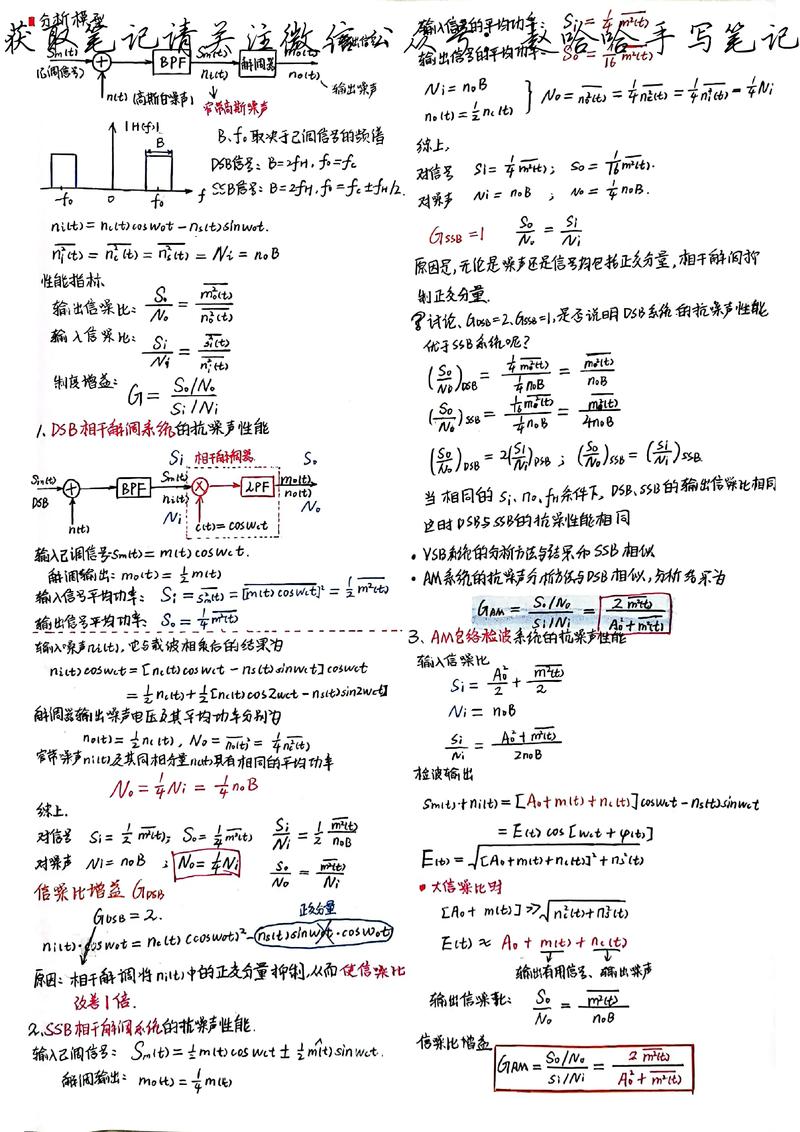 获取笔记请关注微信公众号:数哈哈手写笔记
分析模型
Sm(t) BPF Sm(t) 解调器 mo(t)
(已调信号) ni(t) no(t)
n(t) (高斯白噪声) 窄带高斯噪声 输出噪声
|H(f)|
B
-fo 0 fo f
B、fo取决于已调信号的频谱
DSB信号: B=2fH, fo=fc
SSB信号: B=2fH, fo=fc±fH/2.
ni(t) = nc(t)cosωot - ns(t)sinωot.
ni²(t) = nc²(t) = ns²(t) = Ni = noB
性能指标.
输出信噪比: So/No = mo²(t)/no²(t)
输入信噪比: Si/Ni = si²(t)/ni²(t)
制度增益: G = So/No / Si/Ni
1. DSB相干解调系统的抗噪声性能
Si 相干解调器 So
Sm(t) DSB BPF Sm(t) ni(t) LPF mo(t) no(t)
n(t) Ni c(t)=cosωct No
输入已调信号Sm(t) = m(t)cosωct.
解调输出: mo(t) = ½m(t)
输入信号平均功率: Si = sm²(t) = [m(t)cosωct]² = ½ m²(t)
输出信号平均功率: So = ¼ m²(t)
输入噪声ni(t), 它与载波相乘后的结果为
ni(t)cosωct = [nc(t)cosωct - ns(t)sinωct]cosωct
= ½nc(t) + ½[nc(t)cos2ωct - ns(t)sin2ωct]
解调器输出噪声电压及其平均功率分别为
no(t) = ½nc(t), No = no²(t) = ¼nc²(t)
窄带噪声ni(t)及其同相分量nc(t)具有相同的平均功率
No = ¼Ni = ¼noB
综上.
对信号 Si = ½m²(t); So = ¼m²(t) Si/Ni = ½ m²(t)/noB
对噪声 Ni = noB ; No = ¼Ni So/No = m²(t)/Ni
信噪比增益 GDSB
GDSB = 2. 正交分量
ni(t)·cosωot = nc(t)(cosωot)² - ns(t)sinωot·cosωot
原因: 相干解调将ni(t)中的正交分量抑制,从而使信噪比
改善1倍.
2. SSB相干解调系统的抗噪声性能.
输入已调信号: Sm(t) = ½m(t)cosωct ± ½m̂(t)sinωct.
解调输出: mo(t) = ¼m(t)
输入信号的平均功率: Si = ¼m²(t)
输出信号的平均功率: So = 1/16 m²(t)
Ni = noB
no(t) = ½nc(t) } No = no²(t) = ¼nc²(t) = ¼ni²(t) = ¼Ni
综上,
对信号 Si = ¼m²(t); So = 1/16 m²(t).
对噪声 Ni = noB ; No = ¼noB.
GSSB = 1 So/No = Si/Ni
原因是,无论是噪声还是信号均包括正交分量,相干解调抑
制正交分量.
讨论、GDSB=2、GSSB=1,是否说明DSB系统的抗噪声性能
优于SSB系统呢?
(So/No)DSB = ¼m²(t) / ¼noB = m²(t)/noB
(So/No)SSB = 1/16 m²(t) / ¼noB = m²(t)/4noB
(So/No)DSB = 2(Si/Ni)DSB ; (So/No)SSB = (Si/Ni)SSB.
当相同的Si、no、fH条件下, DSB、SSB的输出信噪比相同
这时DSB与SSB的抗噪性能相同
• VSB系统的分析方法与结果和SSB相似
• AM系统的抗噪声分析方法与DSB相似,分析结果为
GAM = So/No / Si/Ni = 2m²(t) / Ao²+m²(t)
3、AM包络检波系统的抗噪声性能
输入信噪比
Si = Ao²/2 + m²(t)/2
Ni = noB
Si/Ni = Ao²+m²(t) / 2noB
检波输出
Sm(t)+ni(t) = [Ao+m(t)+nc(t)]cosωct - ns(t)sinωct
= E(t)cos[ωct+φ(t)]
E(t) = √[Ao+m(t)+nc(t)]²+ns²(t)
• 大信噪比时
[Ao+m(t)] ≫ √nc²(t)+ns²(t)
E(t) ≈ Ao+m(t)+nc(t)
输出有用信号、输出噪声
输出信噪比: So/No = m²(t)/noB
信噪比增益
GAM = So/No / Si/Ni = 2m²(t) / Ao²+m²(t)